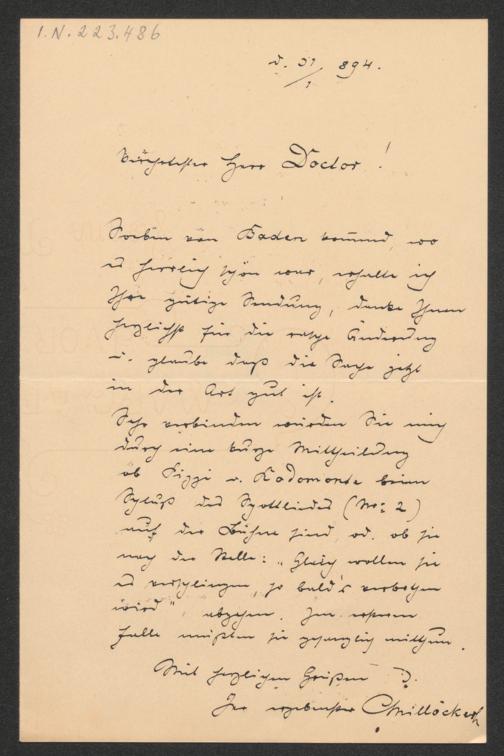 I.N. 223.486
d. 31/1 894.
Verehrtester Herr Doctor!
Soeben von Baden kommend, wo
es herrlich schön war, erhalte ich
Ihre gütige Sendung, danke Ihnen
herzlichst für die rasche Änderung
u. glaube daß die Sache jetzt
in der Art gut ist.
Sehr verbinden würden Sie mich
durch eine kurze Mittheilung
ob v. Rodomonte beim
Schluß des Spottliedes (No: 2)
auf der Bühne sind, od. ob sie
nach der Stelle: „Gleich wollen sie
es verschlingen, so bald's verboten
wird", abgehen. Im ersteren
Falle müßten sie gesanglich mitthun.
Mit herzlichen Grüßen
Ihr ergebenster CMillöcker